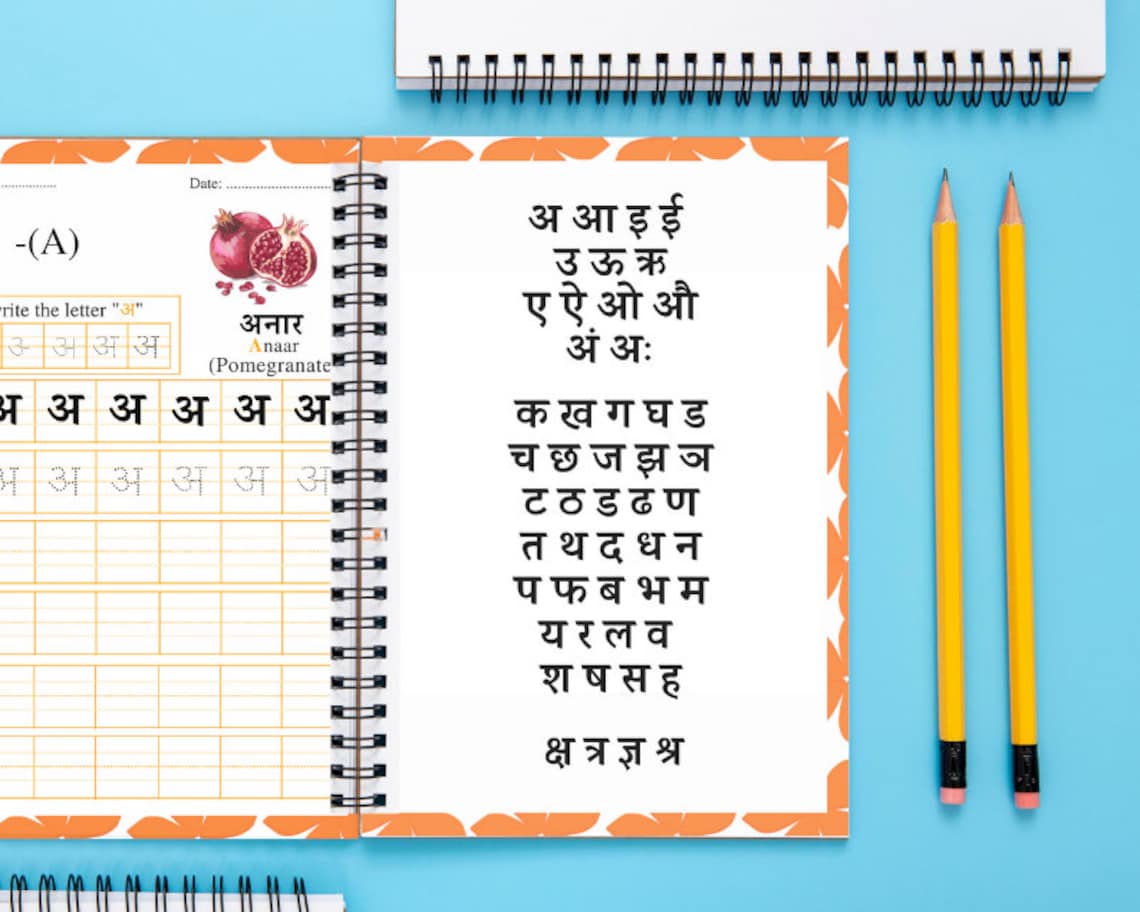 Date: ........................
-(A)
rite the letter "अ"
अ अ अ
अनार
Anaar
(Pomegranate
अ अ अ अ अ अ
अ अ अ अ अ अ
अ आ इ ई
उ ऊ ऋ
ए ऐ ओ औ
अं अः
क ख ग घ ड
च छ ज झ ञ
ट ठ ड ढ ण
त थ द ध न
प फ ब भ म
य र ल व
श ष स ह
क्ष त्र ज्ञ श्र